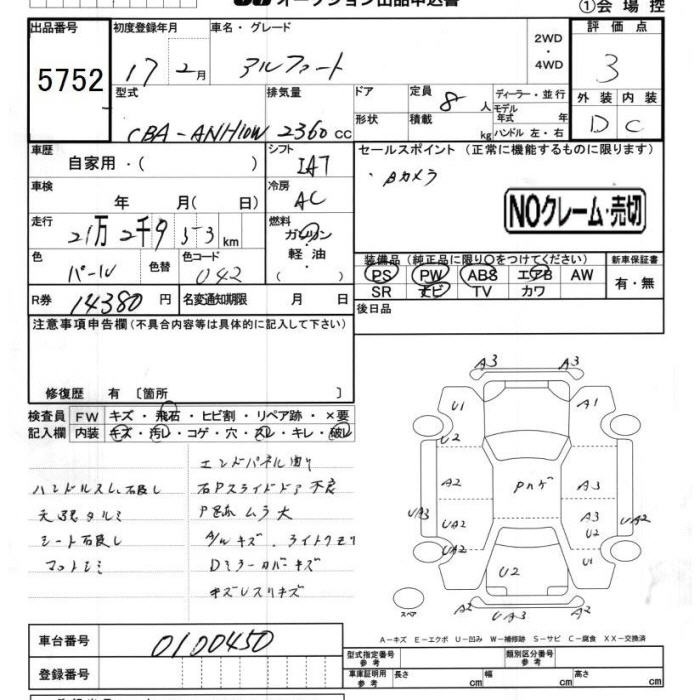 オークション出品申込書
①会場控
出品番号 5752
初度登録年月 17 2月
車名・グレード アルファード
2WD・4WD
評価点 3
外装 内装
D C
型式 CBA-ANH10W
排気量 2360cc
ドア
形状
定員 8人
積載 kg
ディーラー・並行
モデル年式 年
ハンドル 左・右
車歴 自家用・( )
シフト IAT
セールスポイント (正常に機能するものに限ります)
・Bカメラ
NOクレーム・売切
車検 年 月( 日)
冷房 AC
走行 21万2千953km
燃料 ガソリン・軽油・( )
色 パール
色替
色コード 042
装備品 (純正品に限り○をつけてください)
PS PW ABS エアB AW
SR ナビ TV カワ
新車保証書
有・無
R券 14380円
名変通知期限 月 日
後日品
注意事項申告欄 (不具合内容等は具体的に記入して下さい)
修復歴 有 〔箇所 〕
検査員記入欄
FW キズ・飛石・ヒビ割・リペア跡・×要
内装 キズ・汚レ・コゲ・穴・スレ・キレ・破レ
ハンドルスレ
シート
エンドパネル曲り
右Pスライドドア不良
ムラ大
A/Wキズ・ライト
Dミラーカバーキズ
A3 A3
U1 A1
U2
A2 Pハゲ A3
UA3 UA2 A3 UA2
U2
UA2 U2 U1
スペア A2 UA3 A2
A-キズ E-エクボ U-凹み W-補修跡 S-サビ C-腐食 XX-交換済
車台番号 0100450
登録番号
型式指定番号 参考
類別区分番号 参考
車庫証明用 参考 長さ cm 幅 cm 高さ cm